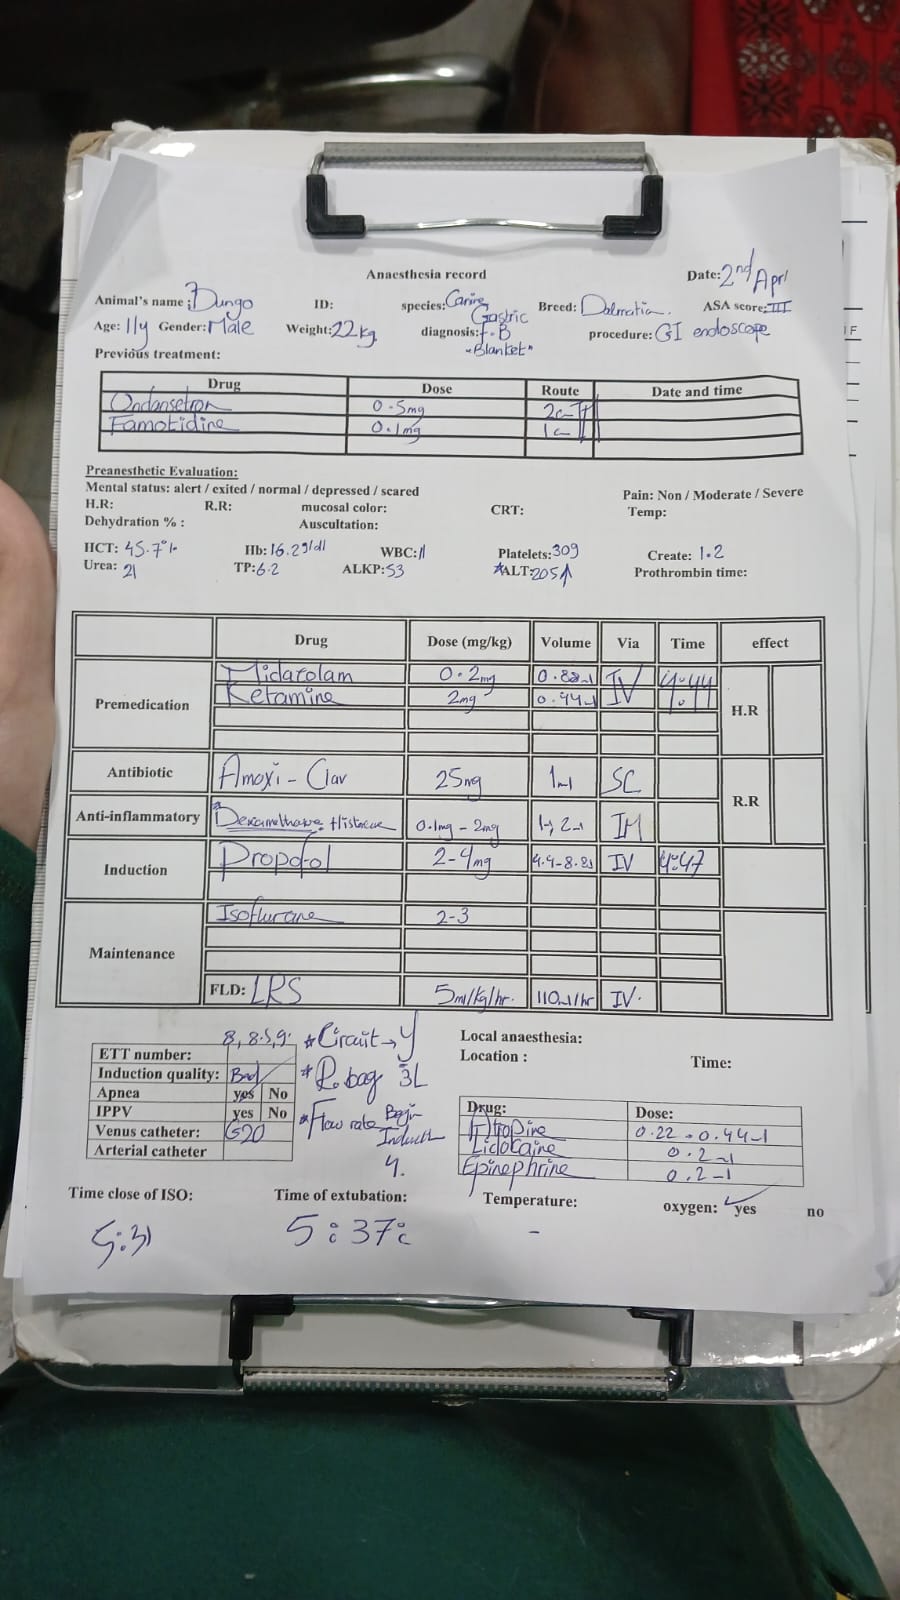 Anaesthesia record
Date: 2nd Apr
Animal's name: Dungo ID: species: Canine Breed: Dalmatian. ASA score: III
Age: 11y Gender: Male Weight: 22kg diagnosis: Gastric F.B "Blanket" procedure: GI endoscope
Previous treatment:
Drug Dose Route Date and time
Ondansetron 0.5mg
Famotidine 0.1mg
Preanesthetic Evaluation:
Mental status: alert / exited / normal / depressed / scared Pain: Non / Moderate / Severe
H.R: R.R: mucosal color: CRT: Temp:
Dehydration % : Auscultation:
HCT: 45.7% Hb: 16.2g/dl WBC: 11 Platelets: 309 Create: 1.2
Urea: 21 TP: 6.2 ALKP: 53 *ALT: 205↑ Prothrombin time:
Drug Dose (mg/kg) Volume Via Time effect
Premedication Midazolam 0.2mg 0.88ml IV 4:44 H.R
Ketamine 2mg 0.44ml
Antibiotic Amoxi - Clav 25mg 1ml SC R.R
Anti-inflammatory 0.1mg - 2mg IM
Induction Propofol 2-4mg 4.4-8.8ml IV 4:47
Maintenance Isoflurane 2-3
FLD: LRS 5ml/kg/hr. 110ml/hr IV.
ETT number: 8, 8.5, 9. *Circuit → Y
Induction quality: Bad *R.bag 3L
Apnea yes No
IPPV yes No *Flow rate Begin
Venus catheter: G20 4.
Arterial catheter
Local anaesthesia:
Location : Time:
Drug: Dose:
Atropine 0.22 - 0.44ml
Lidocaine 0.2ml
Epinephrine 0.2ml
Time close of ISO: Time of extubation: Temperature: - oxygen: yes no
5:31 5:37